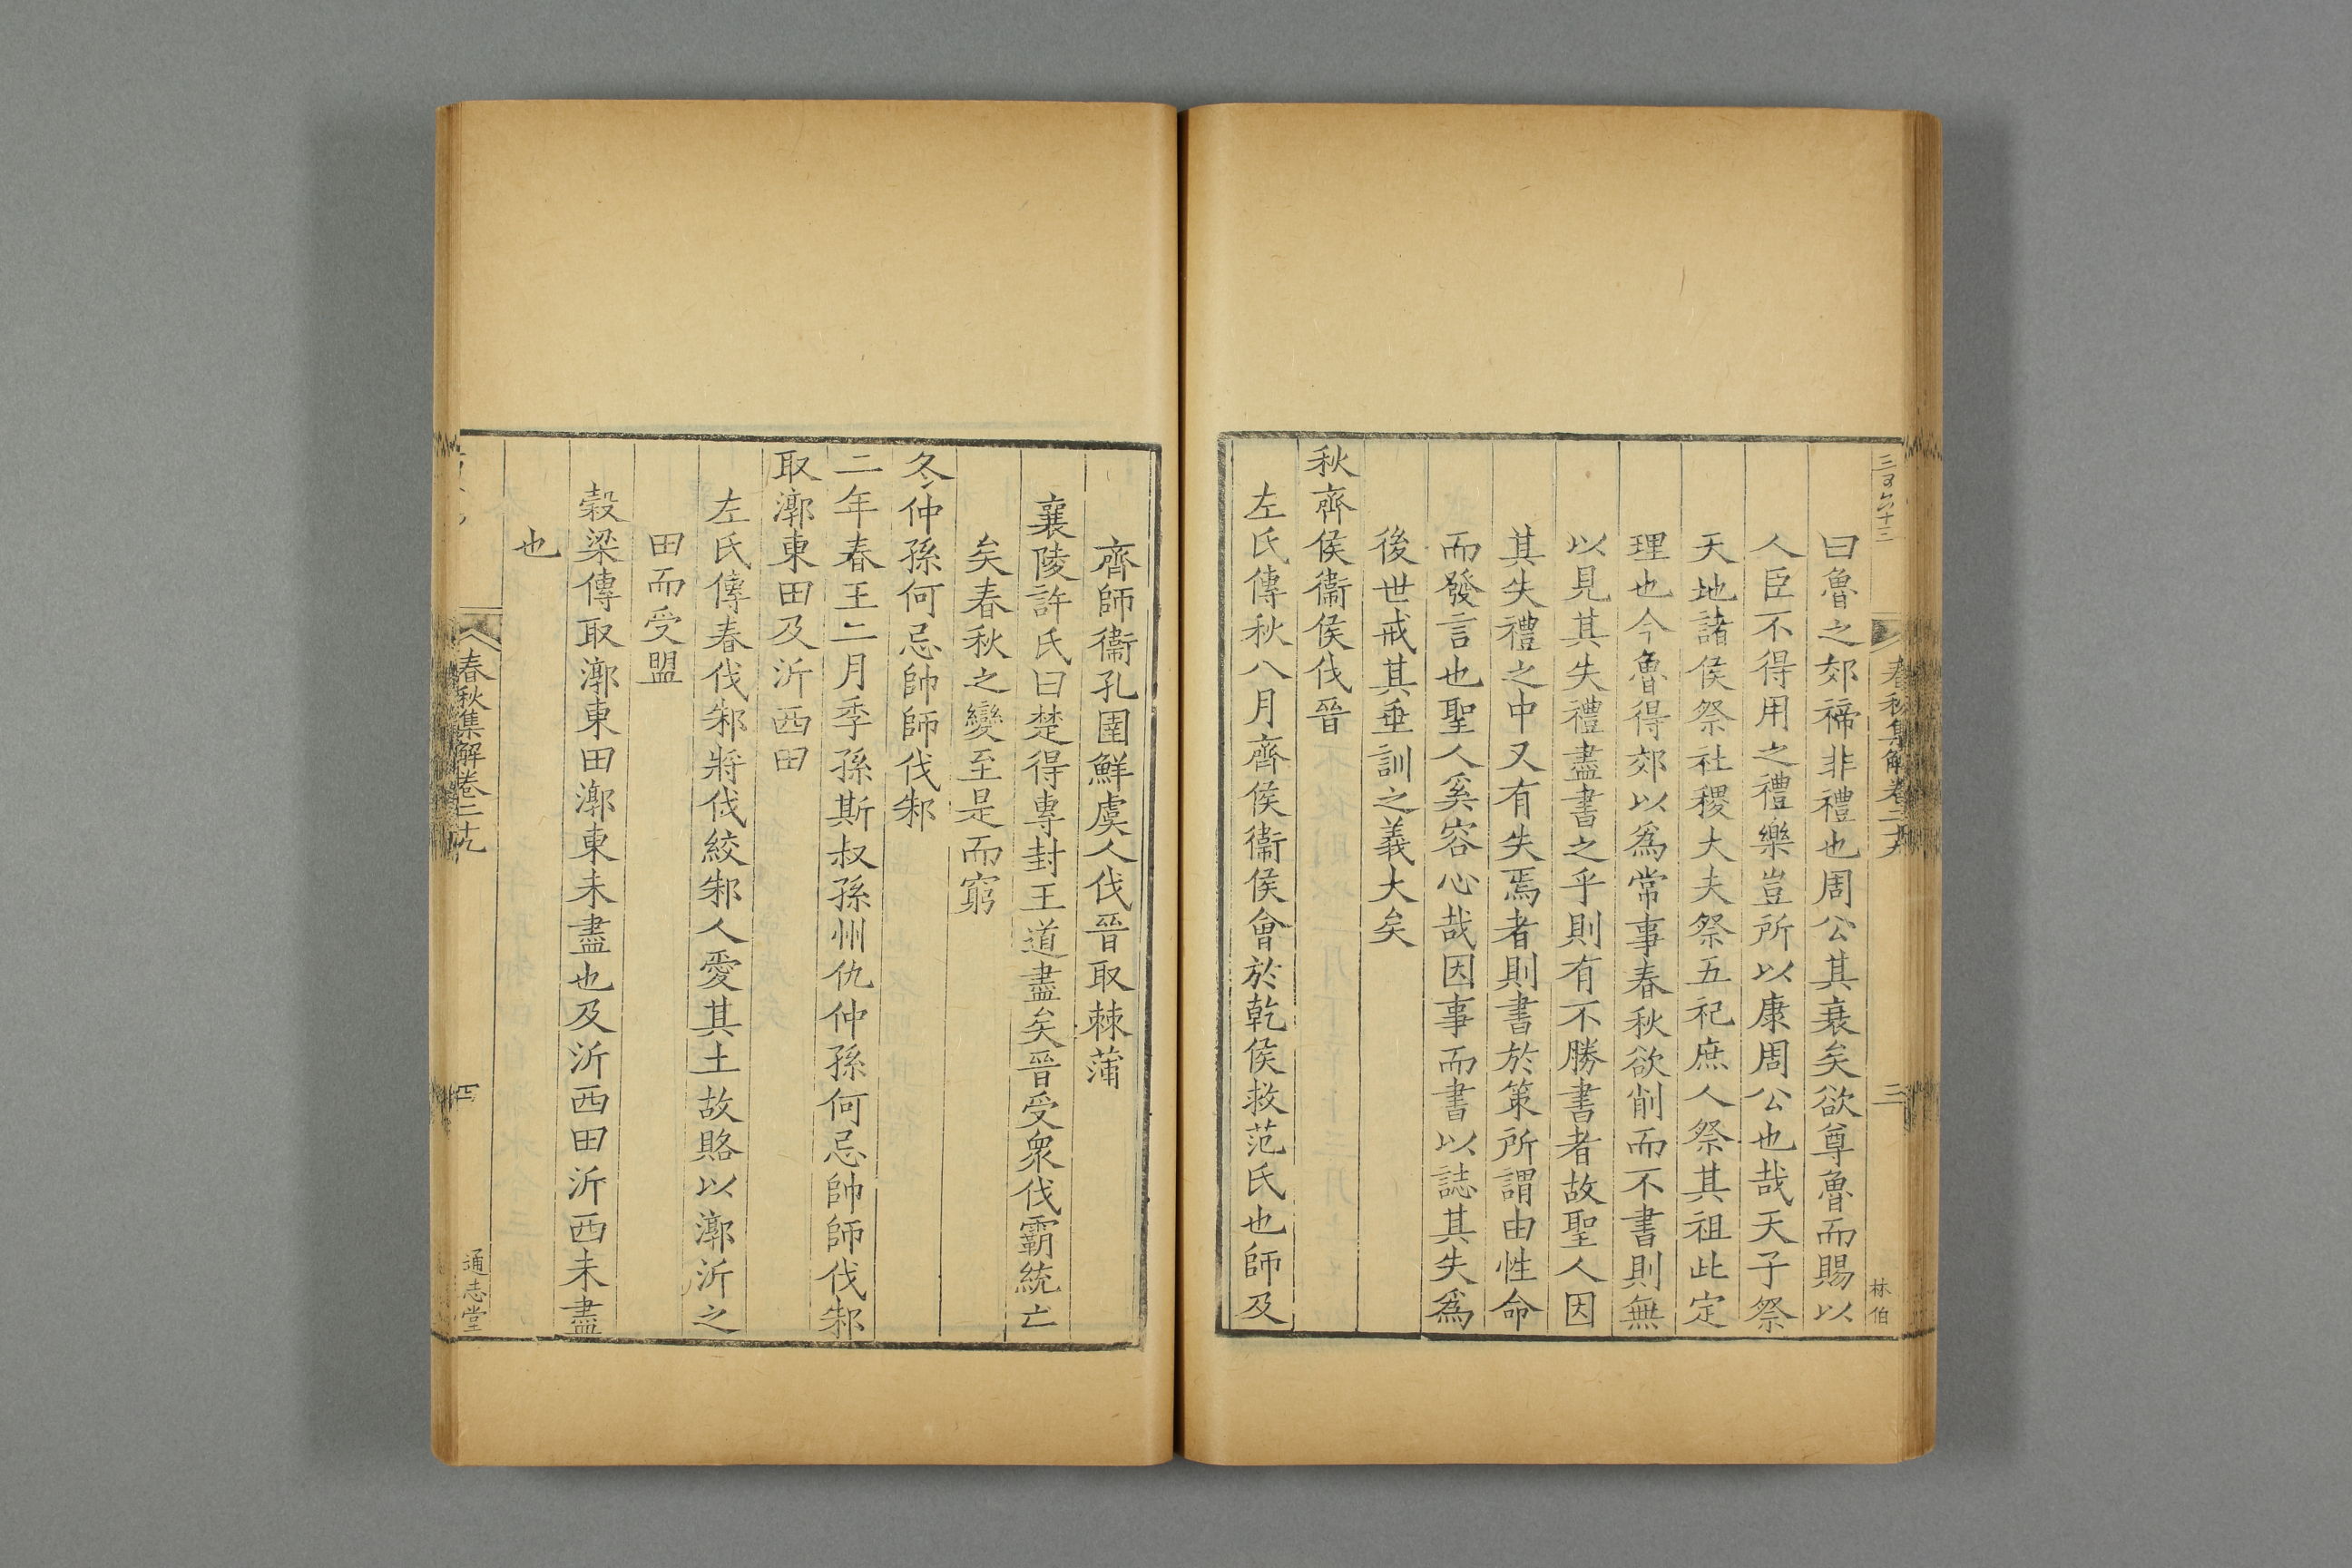 三百六十三
春秋集解卷二十九
三
林伯
曰魯之郊禘非禮也周公其衰矣欲尊魯而賜以
人臣不得用之禮樂豈所以康周公也哉天子祭
天地諸侯祭社稷大夫祭五祀庶人祭其祖此定
理也今魯得郊以爲常事春秋欲削而不書則無
以見其失禮盡書之乎則有不勝書者故聖人因
其失禮之中又有失焉者則書於策所謂由性命
而發言也聖人奚容心哉因事而書以誌其失爲
後世戒其垂訓之義大矣
秋齊侯衞侯伐晉
左氏傳秋八月齊侯衞侯會於乾侯救范氏也師及
齊師衞孔圉鮮虞人伐晉取棘蒲
襄陵許氏曰楚得專封王道盡矣晉受衆伐霸統亡
矣春秋之變至是而窮
冬仲孫何忌帥師伐邾
二年春王二月季孫斯叔孫州仇仲孫何忌帥師伐邾
取漷東田及沂西田
左氏傳春伐邾將伐絞邾人愛其土故賂以漷沂之
田而受盟
穀梁傳取漷東田漷東未盡也及沂西田沂西未盡
也
春秋集解卷二十九
四
通志堂